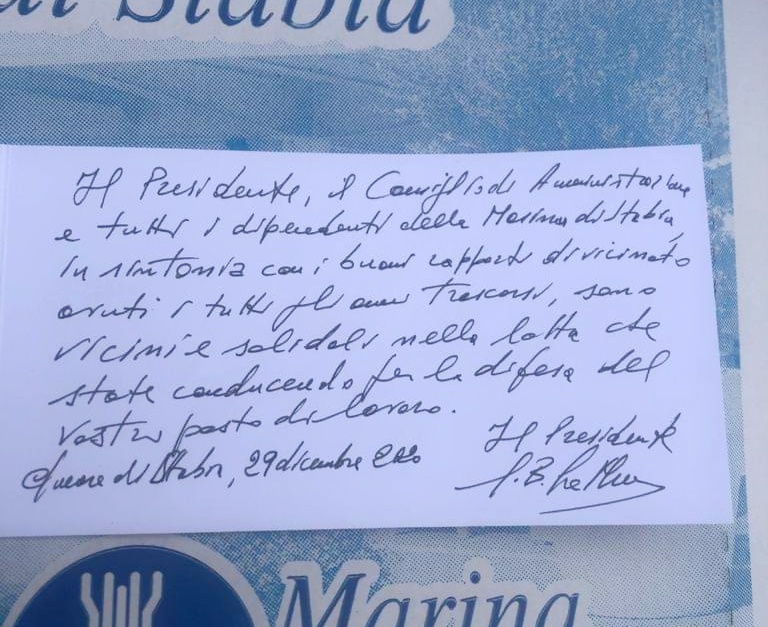 di Stabia
Il Presidente, il Consiglio di Amministrazione
e tutti i dipendenti della Marina di Stabia,
in sintonia con i buoni rapporti di vicinato
avuti i tutti gli anni trascorsi, sono
vicini e solidali nella lotta che
state conducendo per la difesa del
vostro posto di lavoro.
Il Presidente
di Stabia, 29 dicembre 2020
Marina